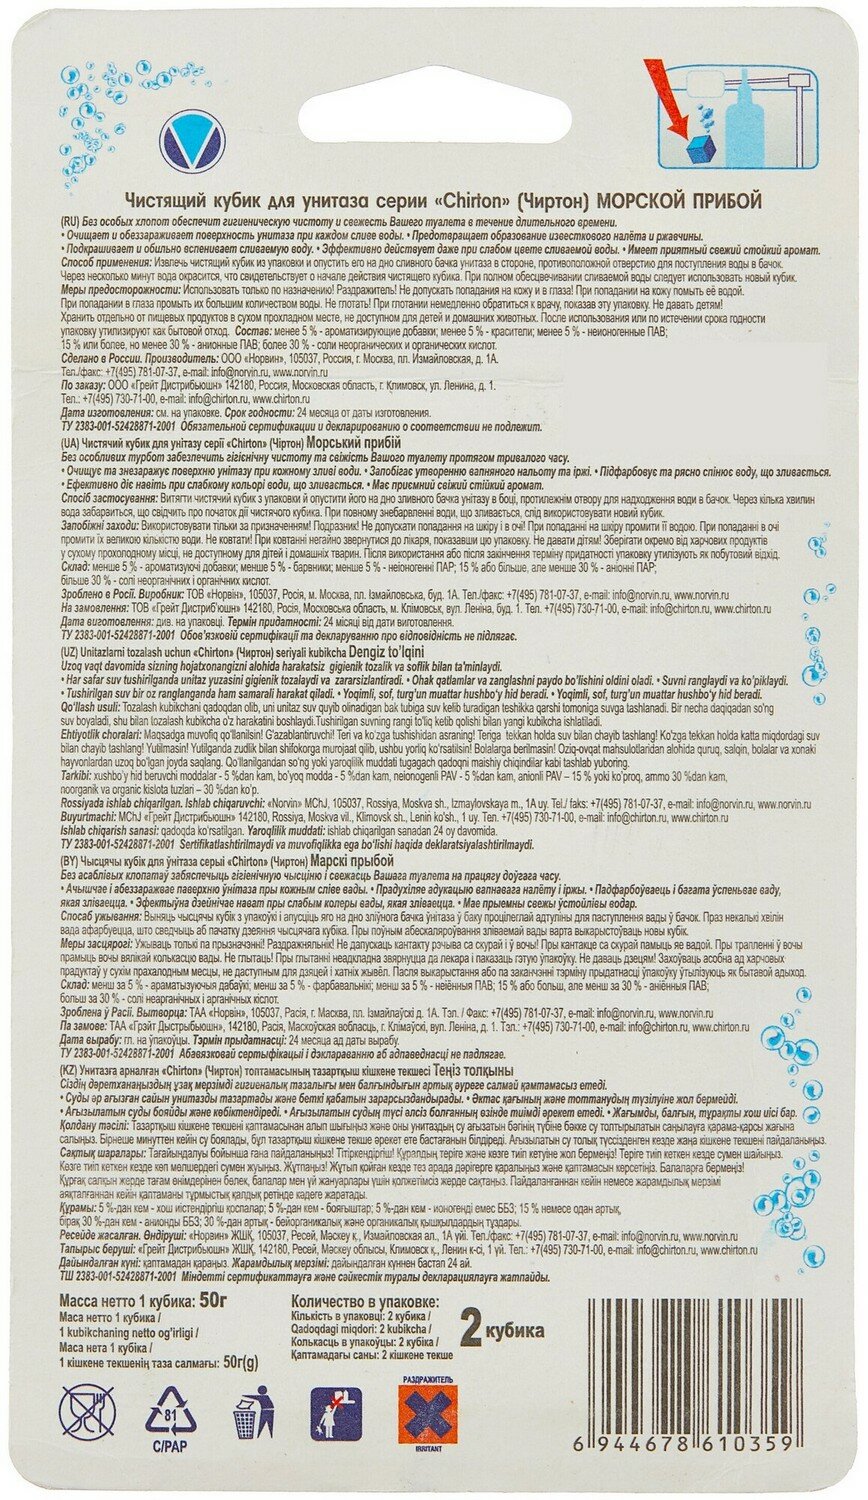 Чистящий кубик для унитаза серии «Chirton» (Чиртон) МОРСКОЙ ПРИБОЙ
(RU) Без особых хлопот обеспечит гигиеническую чистоту и свежесть Вашего туалета в течение длительного времени.
• Очищает и обеззараживает поверхность унитаза при каждом сливе воды. • Предотвращает образование известкового налёта и ржавчины.
• Подкрашивает и обильно вспенивает сливаемую воду. • Эффективно действует даже при слабом цвете сливаемой воды. • Имеет приятный свежий стойкий аромат.
Способ применения: Извлечь чистящий кубик из упаковки и опустить его на дно сливного бачка унитаза в стороне, противоположной отверстию для поступления воды в бачок.
Через несколько минут вода окрасится, что свидетельствует о начале действия чистящего кубика. При полном обесцвечивании сливаемой воды следует использовать новый кубик.
Меры предосторожности: Использовать только по назначению! Раздражитель! Не допускать попадания на кожу и в глаза! При попадании на кожу помыть её водой.
При попадании в глаза промыть их большим количеством воды. Не глотать! При глотании немедленно обратиться к врачу, показав эту упаковку. Не давать детям!
Хранить отдельно от пищевых продуктов в сухом прохладном месте, не доступном для детей и домашних животных. После использования или по истечении срока годности
упаковку утилизируют как бытовой отход. Состав: менее 5% - ароматизирующие добавки; менее 5% - красители; менее 5% - неионогенные ПАВ;
15 % или более, но менее 30% - анионные ПАВ; более 30% - соли неорганических и органических кислот.
Сделано в России. Производитель: ООО «Норвин», 105037, Россия, г. Москва, пл. Измайловская, д. 1А.
Тел./факс: +7(495) 781-07-37, e-mail: info@norvin.ru, www.norvin.ru
По заказу: ООО «Грейт Дистрибьюшн» 142180, Россия, Московская область, г. Климовск, ул. Ленина, д. 1.
Тел.: +7(495) 730-71-00, e-mail: info@chirton.ru, www.chirton.ru
Дата изготовления: см. на упаковке. Срок годности: 24 месяца от даты изготовления.
ТУ 2383-001-52428871-2001 Обязательной сертификации и декларированию о соответствии не подлежит.
(UA) Чистячий кубик для унітазу серії «Chirton» (Чіртон) Морський прибій
Без особливих турбот забезпечить гігієнічну чистоту та свіжість Вашого туалету протягом тривалого часу.
• Очищує та знезаражує поверхню унітазу при кожному зливі води. • Запобігає утворенню вапняного нальоту та іржі. • Підфарбовує та рясно спінює воду, що зливається.
• Ефективно діє навіть при слабкому кольорі води, що зливається. • Має приємний свіжий стійкий аромат.
Спосіб застосування: Витягти чистячий кубик з упаковки й опустити його на дно зливного бачка унітазу в боці, протилежнім отвору для надходження води в бачок. Через кілька хвилин
вода забарвиться, що свідчить про початок дії чистячого кубика. При повному знебарвленні води, що зливається, слід використовувати новий кубик.
Запобіжні заходи: Використовувати тільки за призначенням! Подразник! Не допускати попадання на шкіру і в очі! При попаданні на шкіру промити її водою. При попаданні в очі
промити їх великою кількістю води. Не ковтати! При ковтанні негайно звернутися до лікаря, показавши цю упаковку. Не давати дітям! Зберігати окремо від харчових продуктів
у сухому прохолодному місці, не доступному для дітей і домашніх тварин. Після використання або після закінчення терміну придатності упаковку утилізують як побутовий відхід.
Склад: менше 5 % - ароматизуючі добавки; менше 5 % - барвники; менше 5 % - неіоногенні ПАР; 15 % або більше, але менше 30 % - аніонні ПАР;
більше 30 % - солі неорганічних і органічних кислот.
Зроблено в Росії. Виробник: ТОВ «Норвін», 105037, Росія, м. Москва, пл. Ізмайловська, буд. 1А. Тел./факс: +7(495) 781-07-37, e-mail: info@norvin.ru, www.norvin.ru
На замовлення: ТОВ «Грейт Дистриб'юшн» 142180, Росія, Московська область, м. Клімовськ, вул. Леніна, буд. 1. Тел. +7(495) 730-71-00, e-mail: info@chirton.ru, www.chirton.ru
Дата виготовлення: див. на упаковці. Термін придатності: 24 місяці від дати виготовлення.
ТУ 2383-001-52428871-2001 Обов'язковій сертифікації та декларуванню про відповідність не підлягає.
(UZ) Unitazlarni tozalash uchun «Chirton» (Чиртон) seriyali kubikcha Dengiz to'lqini
Uzoq vaqt davomida sizning hojatxonangizni alohida harakatsiz gigienik tozalik va soflik bilan ta'minlaydi.
• Har safar suv tushirilganda unitaz yuzasini gigienik tozalaydi va zararsizlantiradi. • Ohak qatlamlar va zanglashni paydo bo'lishini oldini oladi. • Suvni ranglaydi va ko'piklaydi.
• Tushirilgan suv bir oz ranglanganda ham samarali harakat qiladi. • Yoqimli, sof, turg'un muattar hushbo'y hid beradi. • Yoqimli, sof, turg'un muattar hushbo'y hid beradi.
Qo'llash usuli: Tozalash kubikchani qadoqdan olib, uni unitaz suv quyib olinadigan bak tubiga suv kelib turadigan teshikka qarshi tomoniga suvga tashlanadi. Bir necha daqiqadan so'ng
suv boyaladi, shu bilan tozalash kubikcha o'z harakatini boshlaydi.Tushirilgan suvning rangi to'liq ketib qolishi bilan yangi kubikcha ishlatiladi.
Ehtiyotlik choralari: Maqsadga muvofiq qo'llanilsin! G'azablantiruvchi! Teri va ko'zga tushishidan asraning! Teriga tekkan holda suv bilan chayib tashlang! Ko'zga tekkan holda katta miqdordagi suv
bilan chayib tashlang! Yutilmasin! Yutilganda zudlik bilan shifokorga murojaat qilib, ushbu yorliq ko'rsatilsin! Bolalarga berilmasin! Oziq-ovqat mahsulotlaridan alohida quruq, salqin, bolalar va xonaki
hayvonlardan uzoq bo'lgan joyda saqlang. Qo'llanilgandan so'ng yoki yaroqlilik muddati tugagach qadoqni maishiy chiqindilar kabi tashlab yuboring.
Tarkibi: xushbo'y hid beruvchi moddalar - 5 %dan kam, bo'yoq modda - 5 %dan kam, neionogenli PAV - 5 %dan kam, anionli PAV – 15 % yoki ko'proq, ammo 30 %dan kam,
noorganik va organic kislota tuzlari – 30 %dan ko'p.
Rossiyada ishlab chiqarilgan. Ishlab chiqaruvchi: «Norvin» MChJ, 105037, Rossiya, Moskva sh., Izmaylovskaya m., 1A uy. Tel./ faks: +7(495) 781-07-37, e-mail: info@norvin.ru, www.norvin.ru
Buyurtmachi: MChJ «Грейт Distribyushn» 142180, Rossiya, Moskva vil., Klimovsk sh., Lenin ko'sh., 1 uy. Тел. +7(495) 730-71-00, e-mail: info@chirton.ru, www.chirton.ru
Ishlab chiqarish sanasi: qadoqda ko'rsatilgan. Yaroqlilik muddati: ishlab chiqarilgan sanadan 24 oy davomida.
ТУ 2383-001-52428871-2001 Sertifikatlashtirilmaydi va muvofiqlikka ega bo'lishi haqida deklaratsiyalashtirilmaydi.
(BY) Чысцячы кубік для ўнітаза серыі «Chirton» (Чиртон) Марскі прыбой
Без асаблівых клопатаў забяспечыць гігіенічную чысціню і свежасць Вашага туалета на працягу доўгага часу.
• Ачышчае і абеззаражвае паверхню ўнітаза пры кожным зліве вады. • Прадухіляе адукацыю вапнавага налёту і іржы. • Падфарбоўваець і багата ўспеньвае ваду,
якая зліваецца. • Эфектыўна дзейнічае нават пры слабым колеры вады, якая зліваецца. • Мае прыемны свежы ўстойлівы водар.
Спосаб ужывання: Выняць чысцячы кубік з упакоўкі і апусціць яго на дно зліўнога бачка ўнітаза ў баку процілеглай адтуліны для паступлення вады ў бачок. Праз некалькі хвілін
вада афарбуецца, што сведчыць аб пачатку дзеяння чысцячага кубіка. Пры поўным абескаляроўвання зліваемай вады варта выкарыстоўваць новы кубік.
Меры засцярогі: Ужываць толькі па прызначэнні! Раздражняльнік! Не дапускаць кантакту рэчыва са скурай і ў вочы! Пры кантакце са скурай памыць яе вадой. Пры трапленні ў вочы
прамыць вочы вялікай колькасцю вады. Не глытаць! Пры глытанні неадкладна звярнуцца да лекара і паказаць гэтую ўпакоўку. Не даваць дзецям! Захоўваць асобна ад харчовых
прадуктаў у сухім прахалодным месцы, не даступным для дзяцей і хатніх жывёл. Пасля выкарыстання або па заканчэнні тэрміну прыдатнасці ўпакоўку ўтылізуюць як бытавой адыход.
Склад: менш за 5 % - араматызуючыя дабаўкі; менш за 5 % - фарбавальнікі; менш за 5 % - неіённыя ПАВ; 15 % або больш, але менш за 30 % - аніённыя ПАВ;
больш за 30 % - солі неарганічных і арганічных кіслот.
Зроблена ў Расіі. Вытворца: ТАА «Норвін», 105037, Расія, г. Масква, пл. Ізмайлаўскі д. 1А. Тэл. / Факс: +7(495) 781-07-37, e-mail: info@norvin.ru, www.norvin.ru
Па замове: ТАА «Грэйт Дыстрыбьюшн», 142180, Расія, Маскоўская вобласць, г. Клімаўскі, вул. Леніна, д. 1. Тэл.: +7(495) 730-71-00, e-mail: info@chirton.ru, www.chirton.ru
Дата вырабу: гл. на ўпакоўцы. Тэрмін прыдатнасці: 24 месяца ад даты вырабу.
ТУ 2383-001-52428871-2001 Абавязковай сертыфікацыі і дэклараванню аб адпаведнасці не падлягае.
(KZ) Унитазға арналған «Chirton» (Чиртон) топтамасының тазартқыш кішкене текшесі Теңіз толқыны
Сіздің дәретханаңыздың ұзақ мерзімді гигиеналық тазалығы мен балғындығын артық әуреге салмай қамтамасыз етеді.
• Суды әр ағызған сайын унитазды тазартады және беткі қабатын зарарсыздандырады. • Әктас қағының және тоттанудың түзілуіне жол бермейді.
• Ағызылатын суды бояйды және көбіктендіреді. • Ағызылатын судың түсі әлсіз болғанның өзінде тиімді әрекет етеді. • Жағымды, балғын, тұрақты хош иісі бар.
Қолдану тәсілі: Тазартқыш кішкене текшені қаптамасынан алып шығыңыз және оны унитаздың су ағызатын бәгінің түбіне бәкке су толтырылатын саңылауға қарама-қарсы жағына
салыңыз. Бірнеше минуттен кейін су боялады, бұл тазартқыш кішкене текше әрекет ете бастағанын білдіреді. Ағызылатын су толық түссізденген кезде жаңа кішкене текшені пайдаланыңыз.
Сақтық шаралары: Тағайындалуы бойынша ғана пайдаланыңыз! Тітіркендіргіш! Құралдың теріге және көзге тиіп кетуіне жол бермеңіз! Теріге тиіп кеткен кезде сумен шайыңыз.
Көзге тиіп кеткен кезде көп мөлшердегі сумен жуыңыз. Жұтпаңыз! Жұтып қойған кезде тез арада дәрігерге қаралыңыз және қаптамасын көрсетіңіз. Балаларға бермеңіз!
Құрғақ салқын жерде тағам өнімдерінен бөлек, балалар мен үй жануарлары үшін қолжетімсіз жерде сақтаңыз. Пайдаланғаннан кейін немесе жарамдылық мерзімі
аяқталғаннан кейін қаптаманы тұрмыстық қалдық ретінде кәдеге жаратады.
Құрамы: 5 %-дан кем - хош иістендіргіш қоспалар; 5 %-дан кем - бояғыштар; 5 %-дан кем - ионогенді емес ББЗ; 15 % немесе одан артық,
бірақ 30 %-дан кем - анионды ББЗ; 30 %-дан артық - бейорганикалық және органикалық қышқылдардың тұздары.
Ресейде жасалған. Өндіруші: «Норвин» ЖШҚ, 105037, Ресей, Мәскеу қ., Измайловская ал., 1А үйі. Тел./факс: +7(495) 781-07-37, e-mail: info@norvin.ru, www.norvin.ru
Тапырыс беруші: «Грейт Дистрибьюшн» ЖШҚ, 142180, Ресей, Мәскеу облысы, Климовск қ., Ленин к-сі, 1 үйі. Тел.: +7(495) 730-71-00, e-mail: info@chirton.ru, www.chirton.ru
Дайындалған күні: қаптамадан қараңыз. Жарамдылық мерзімі: дайындалған күннен бастап 24 ай.
ТШ 2383-001-52428871-2001 Міндетті сертификаттауға және сәйкестік туралы декларациялауға жатпайды.
Масса нетто 1 кубика: 50г
Маса нетто 1 кубика /
1 kubikchaning netto og'irligi /
Маса нета 1 кубіка /
1 кішкене текшенің таза салмағы: 50г(g)
Количество в упаковке:
Кількість в упаковці: 2 кубика /
Qadoqdagi miqdori: 2 kubikcha /
Колькасць в упакоўцы: 2 кубіка /
Қаптамадағы саны: 2 кішкене текше
2 кубика
81
C/PAP
РАЗДРАЖИТЕЛЬ
IRRITANT
6 944678 610359